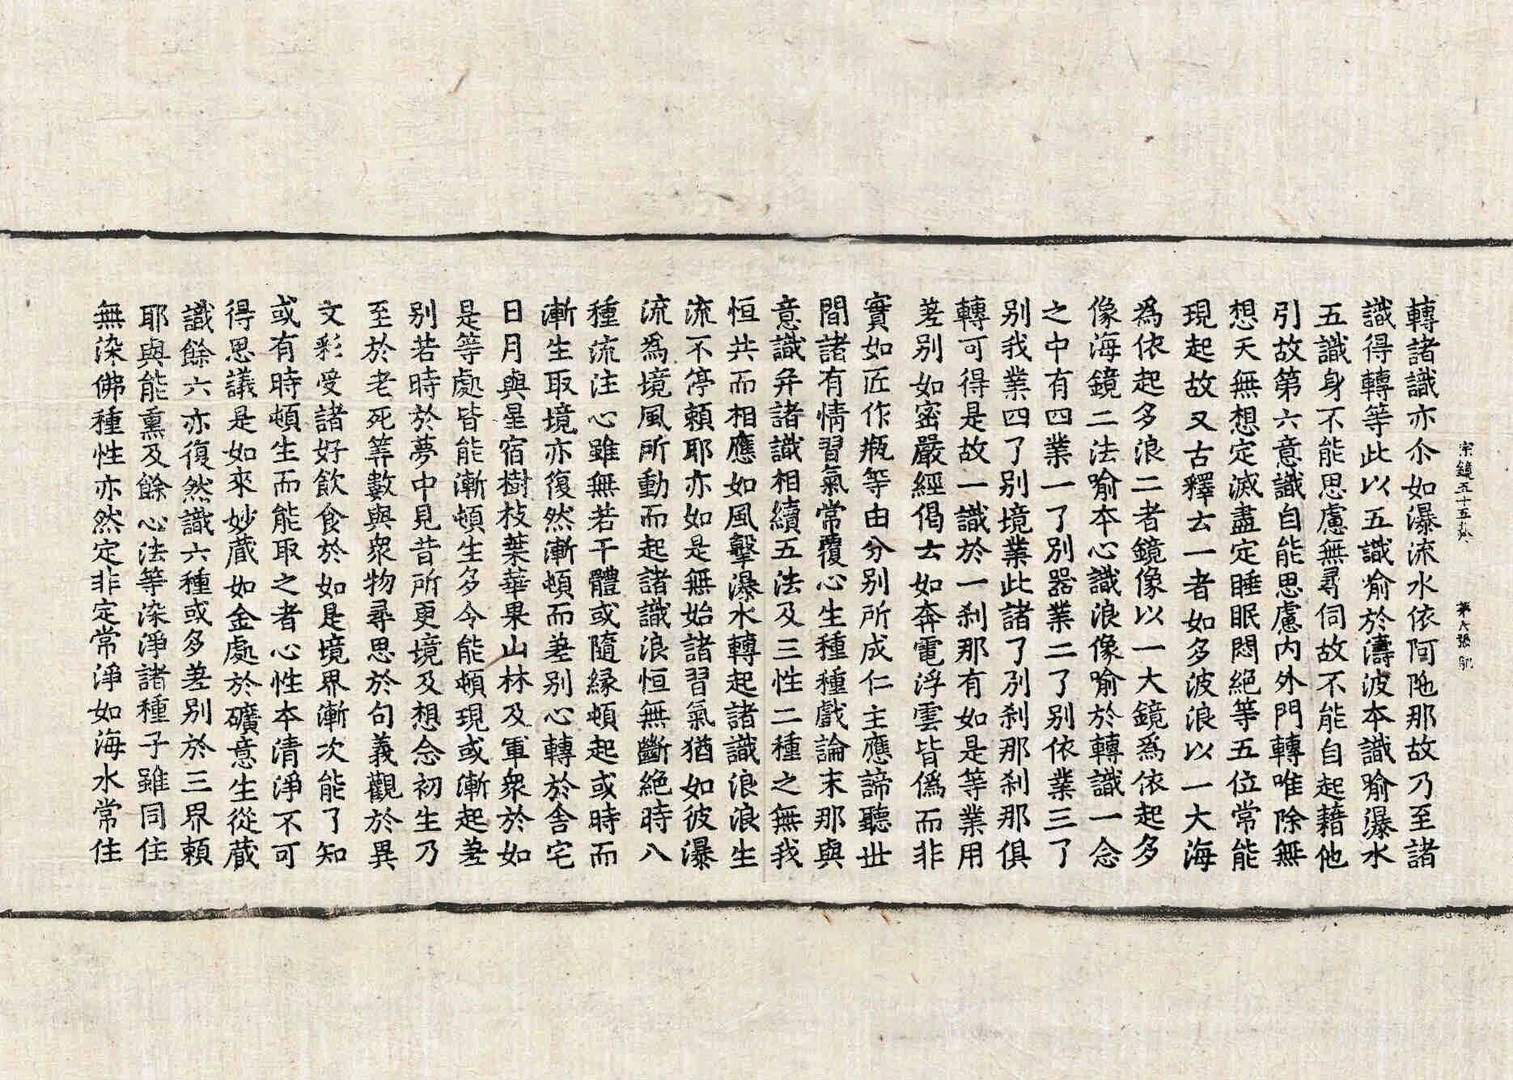 宗鏡五十五卷 第六張
轉諸識亦尒如瀑流水依阿陁那故乃至諸
識得轉等此以五識喻於濤波本識喻瀑水
五識身不能思慮無尋伺故不能自起藉他
引故第六意識自能思慮內外門轉唯除無
想天無想定滅盡定睡眠悶絕等五位常能
現起故又古釋云一者如多波浪以一大海
爲依起多浪二者鏡像以一大鏡爲依起多
像海鏡二法喻本心識浪像喻於轉識一念
之中有四業一了別器業二了別依業三了
別我業四了別境業此諸了別刹那刹那俱
轉可得是故一識於一刹那有如是等業用
差別如密嚴經偈云如奔電浮雲皆僞而非
實如匠作瓶等由分別所成仁主應諦聽世
間諸有情習氣常覆心生種種戲論末那與
意識并諸識相續五法及三性二種之無我
恒共而相應如風擊瀑水轉起諸識浪浪生
流不停賴耶亦如是無始諸習氣猶如彼瀑
流爲境風所動而起諸識浪恒無斷絕時八
種流注心雖無若干體或隨緣頓起或時而
漸生取境亦復然漸頓而差別心轉於舍宅
日月與星宿樹枝葉華果山林及軍衆於如
是等處皆能漸頓生多令能頓現或漸起差
別若時於夢中見昔所更境及想念初生乃
至於老死筭數與衆物尋思於句義觀於異
文彩受諸好飲食於如是境界漸次能了知
或有時頓生而能取之者心性本清淨不可
得思議是如來妙藏如金處於礦意生從藏
識餘六亦復然識六種或多差別於三界賴
耶與能熏及餘心法等染淨諸種子雖同住
無染佛種性亦然定非定常淨如海水常住